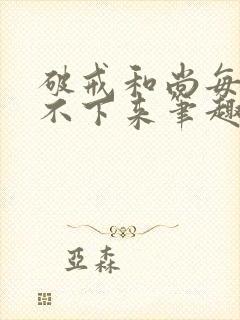 破戒和尚每
不下来筆趣
亞森